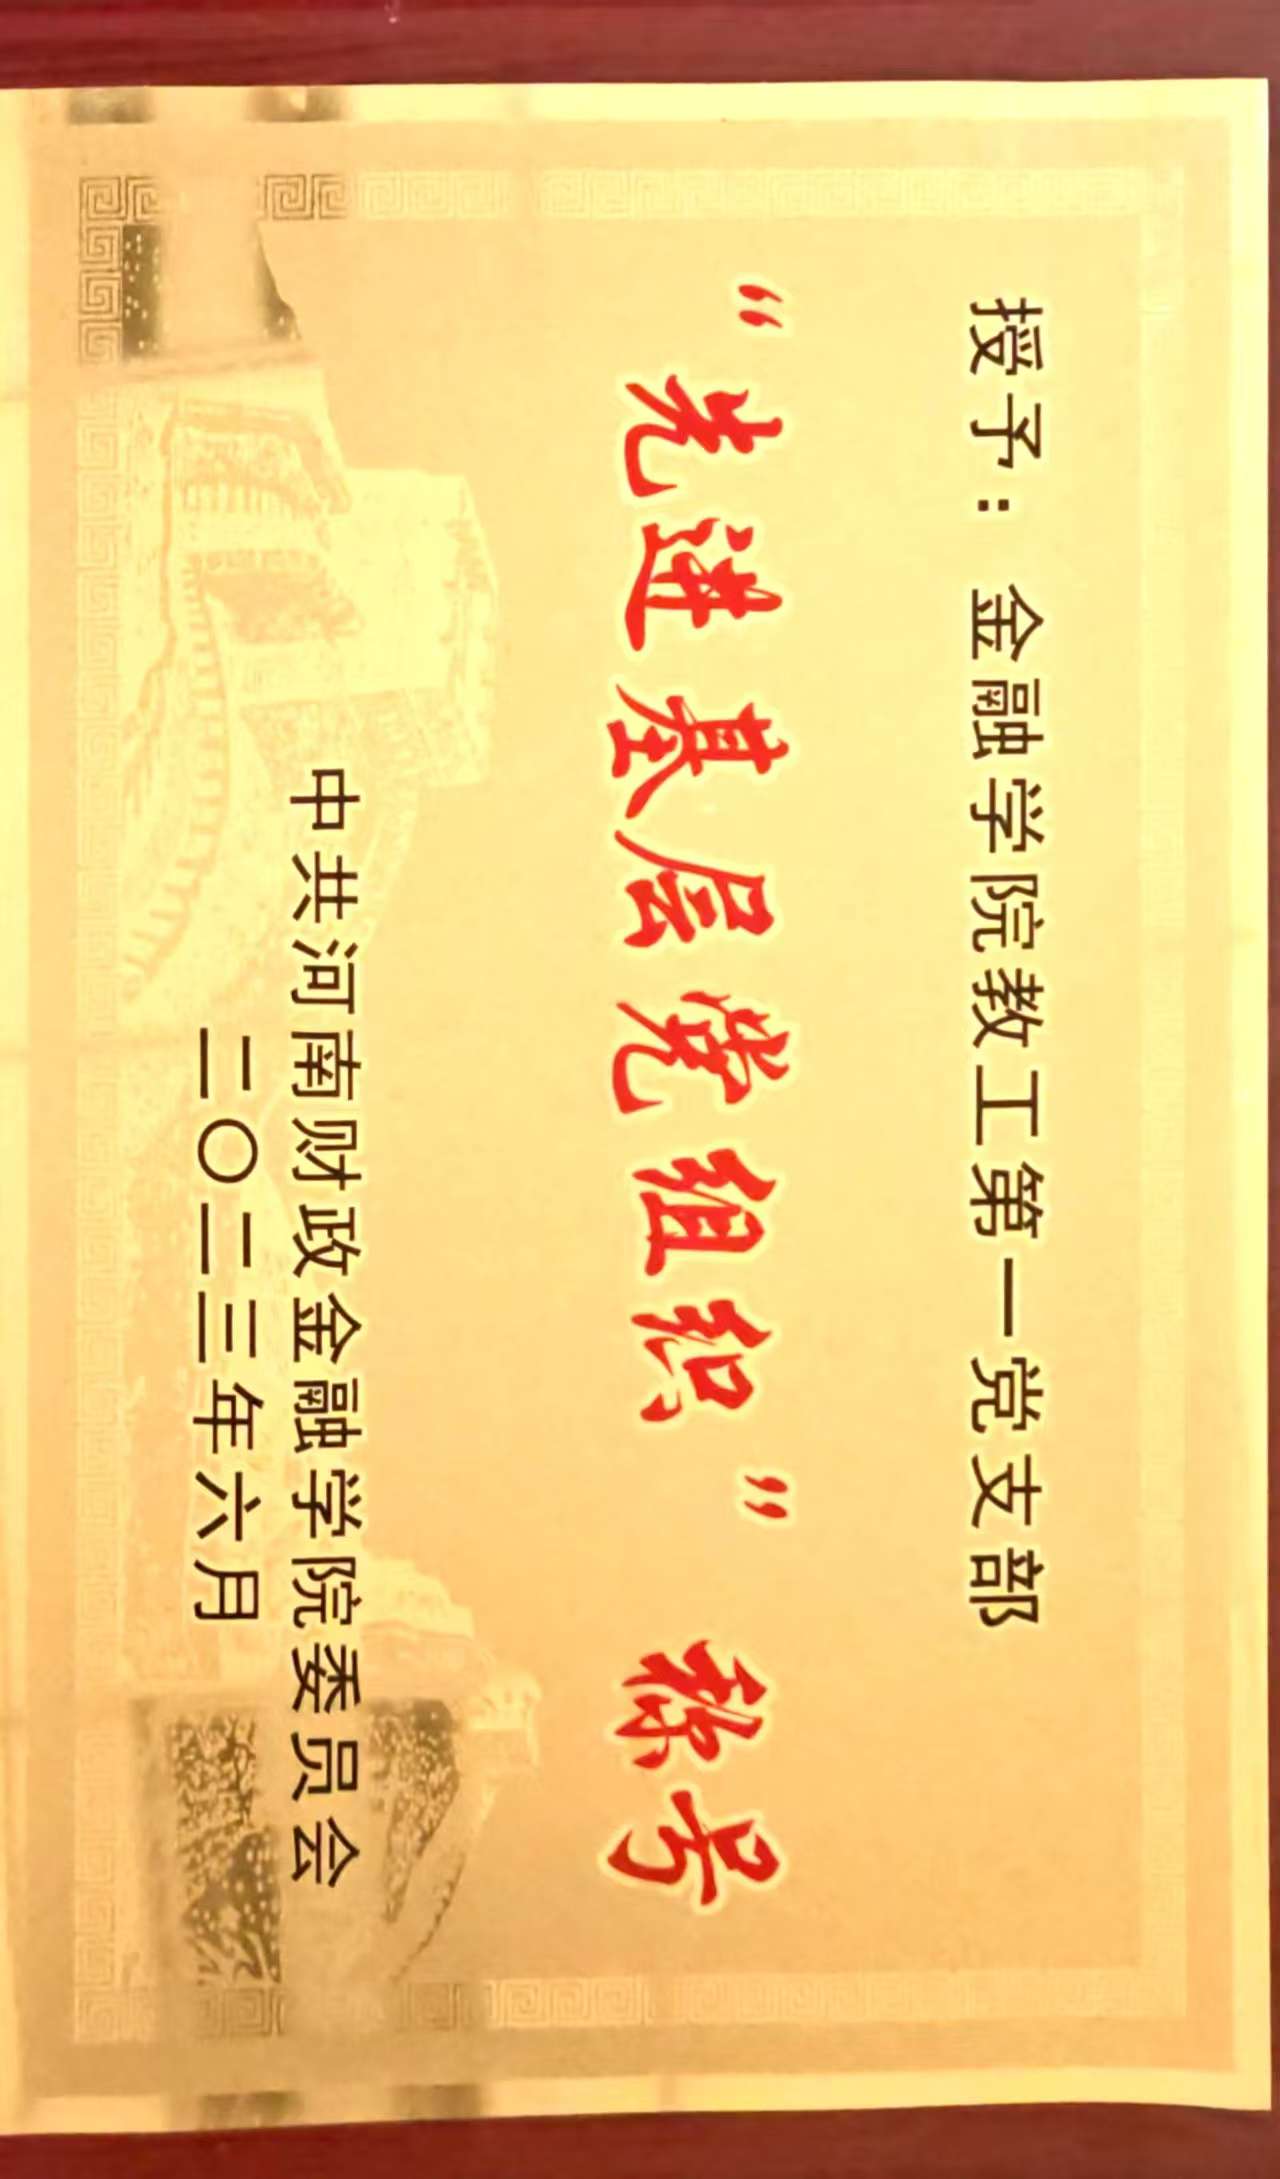 授予：金融学院教工第一党支部
“先进基层党组织”称号
中共河南财政金融学院委员会
二〇二三年六月